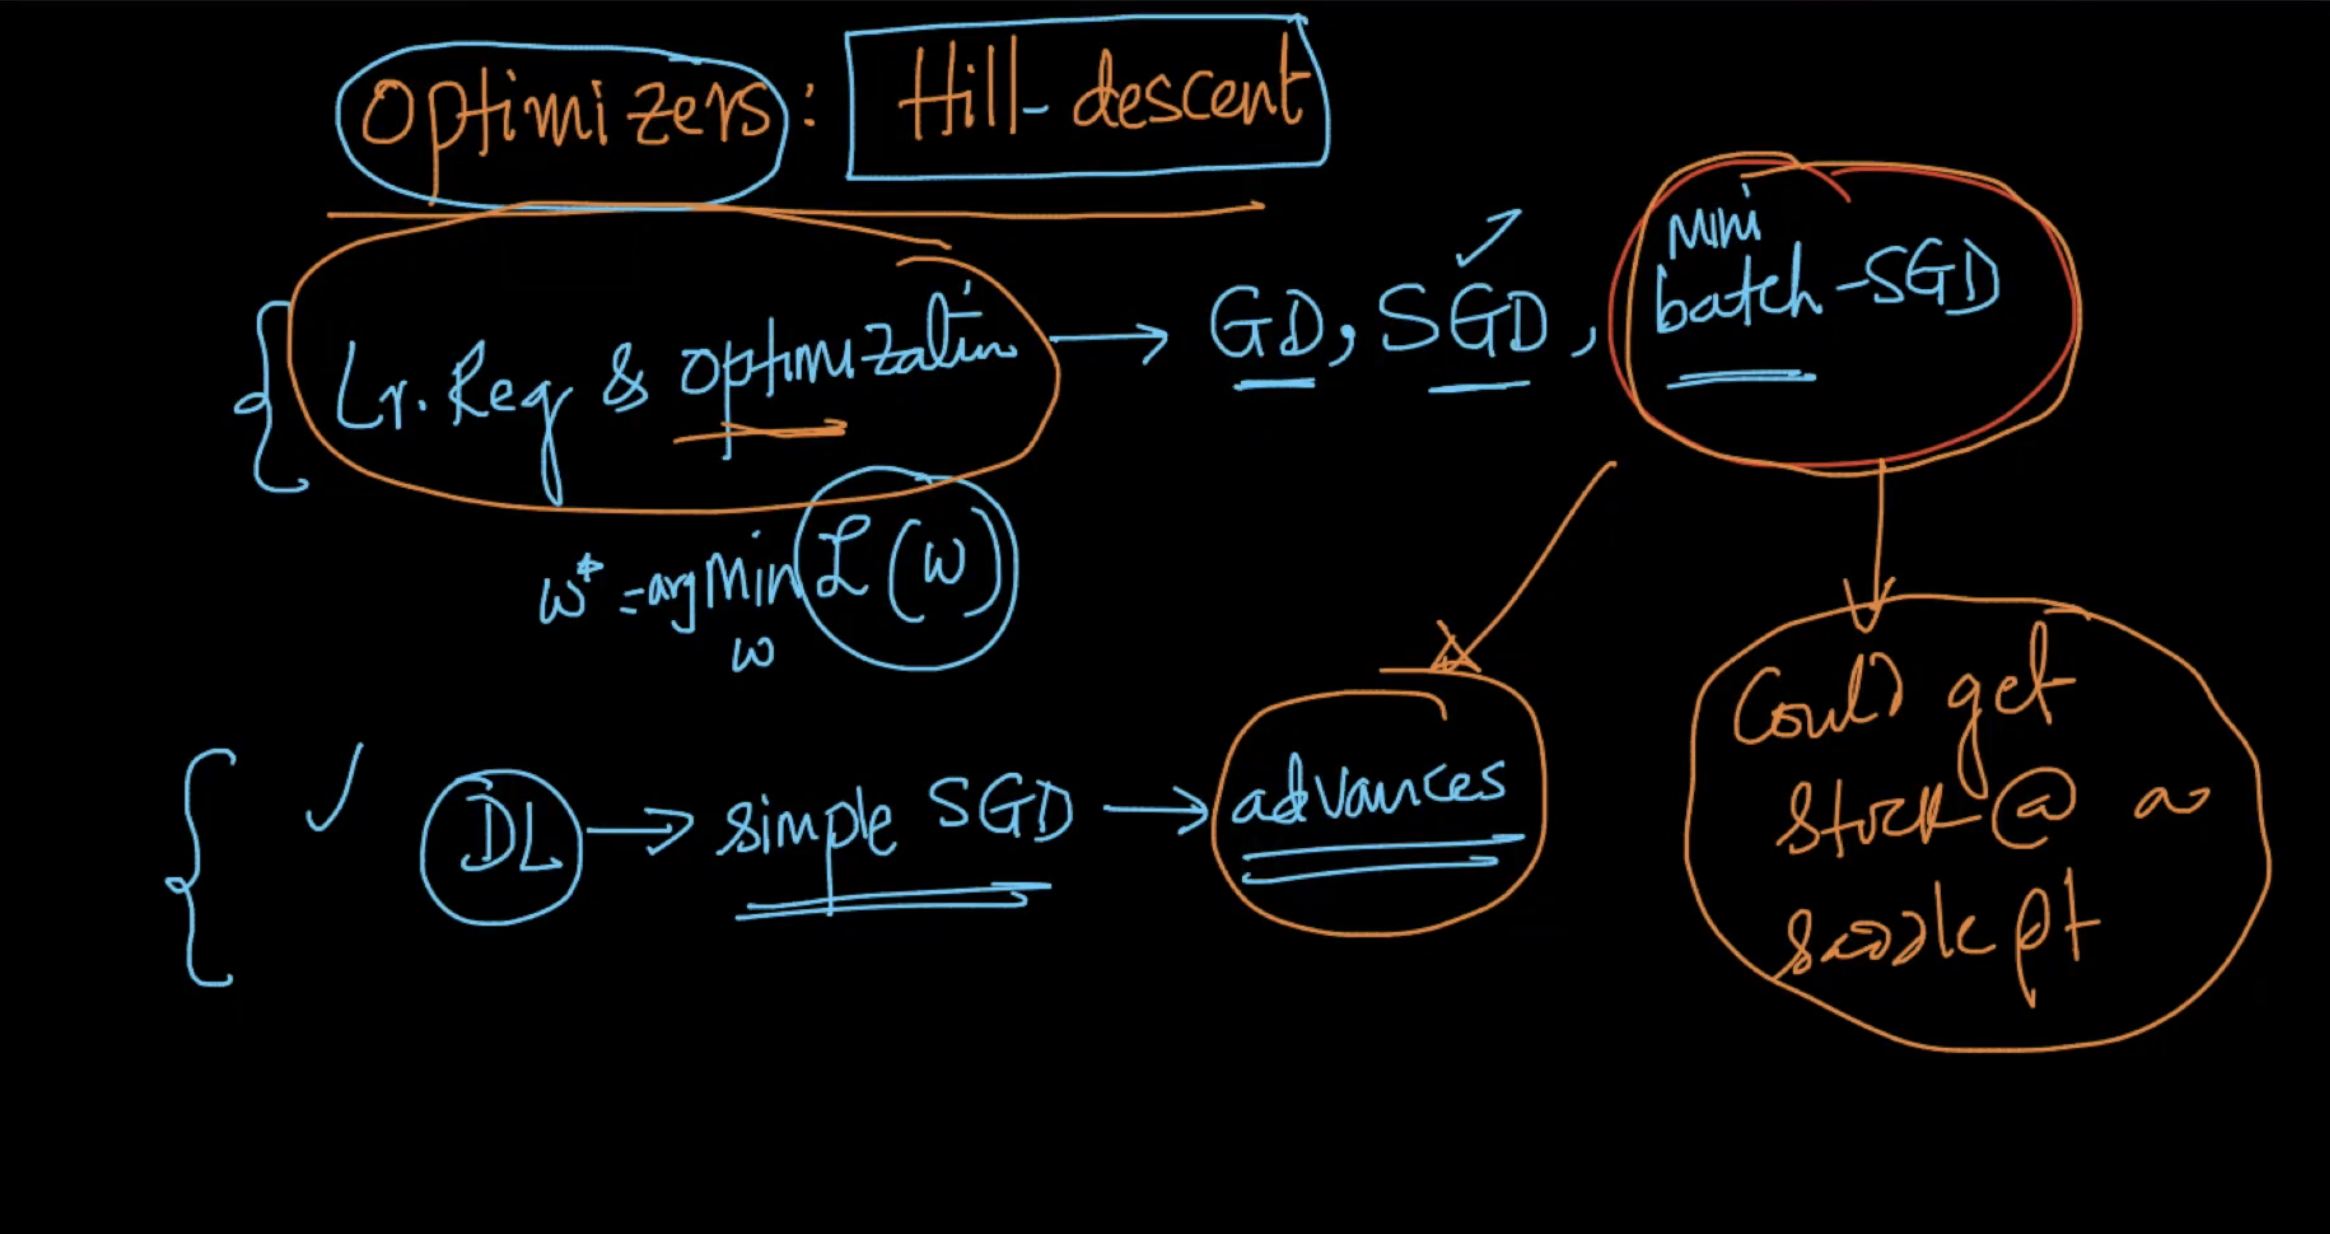 Optimizers : Hill-descent
Lr. Reg & optimization → GD, SGD, mini batch-SGD
w* = argmin L(w)
w
DL → simple SGD → advances
Could get
stuck @ a
saddle pt